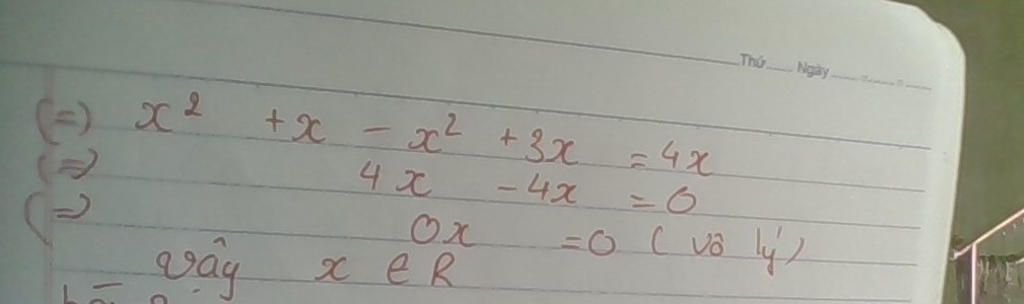 Thứ ..... Ngày ..........
(=) x² + x - x² + 3x = 4x
(=) 4x - 4x = 0
(=) 0x = 0 ( vô lý )
vậy x ∈ R